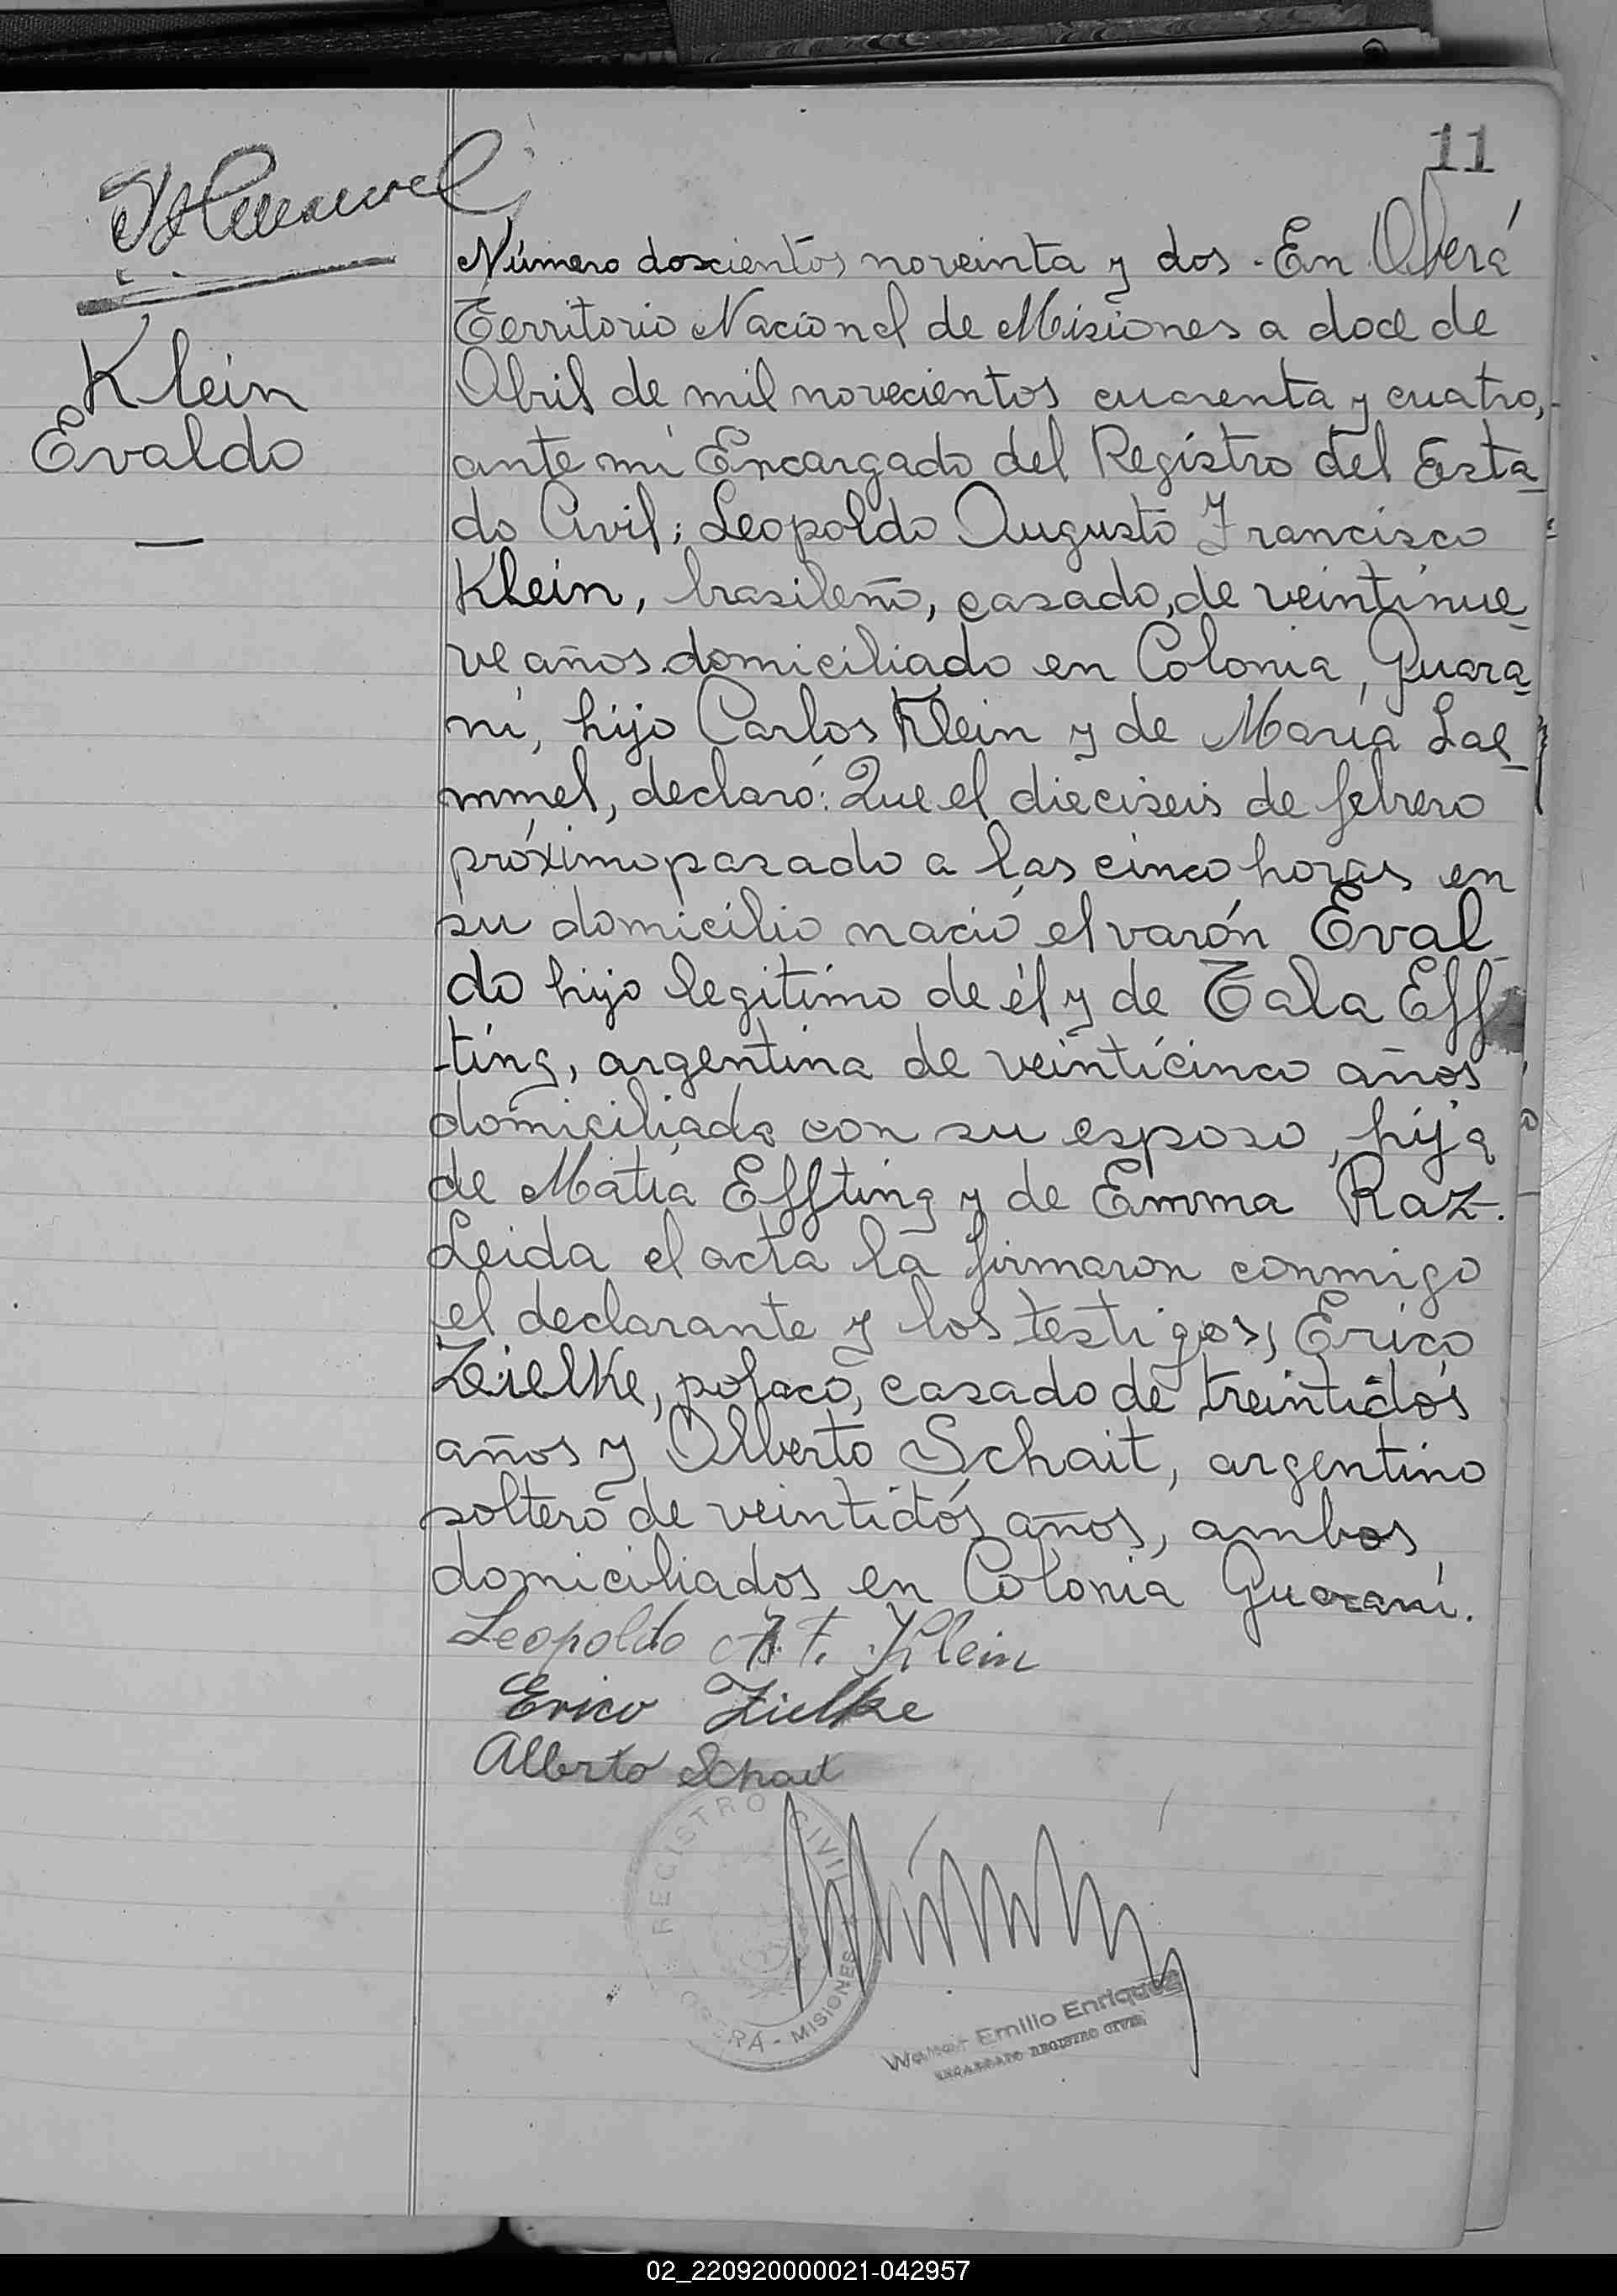 11
Klein
Evaldo
Número doscientos noveinta y dos. En Oberá
Territorio Nacional de Misiones a doce de
Abril de mil novecientos cuarenta y cuatro,
ante mí Encargado del Registro del Esta-
do Civil; Leopoldo Augusto Francisco
Klein, brasileño, casado, de veintinue-
ve años domiciliado en Colonia, Guara-
ní, hijo Carlos Klein y de María Lae-
mmel, declaró: Que el dieciseis de febrero
próximo pasado a las cinco horas en
su domicilio nació el varón Eval-
do hijo legítimo de él y de Tala Eff-
-ting, argentina de veinticinco años
domiciliada con su esposo, hija
de Matía Effting y de Emma Raz.
Leida el acta la firmaron conmigo
el declarante y los testigos, Erico
Zielke, polaco, casado de treintidós
años y Alberto Schait, argentino
soltero de veintidós años, ambos
domiciliados en Colonia Guaraní.
Leopoldo A. F. Klein
Erico Zielke
Alberto Schait
REGISTRO CIVIL
OBERÁ - MISIONES
Walter Emilio Enriquez
ENCARGADO REGISTRO CIVIL
02_220920000021-042957